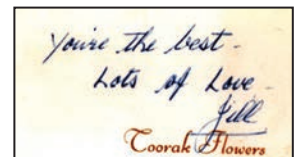 You're the best -
Lots of Love -
Jill
Toorak Flowers